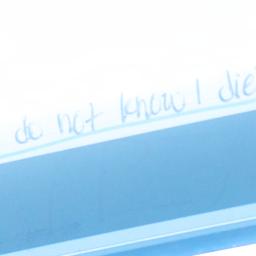 do not know I die